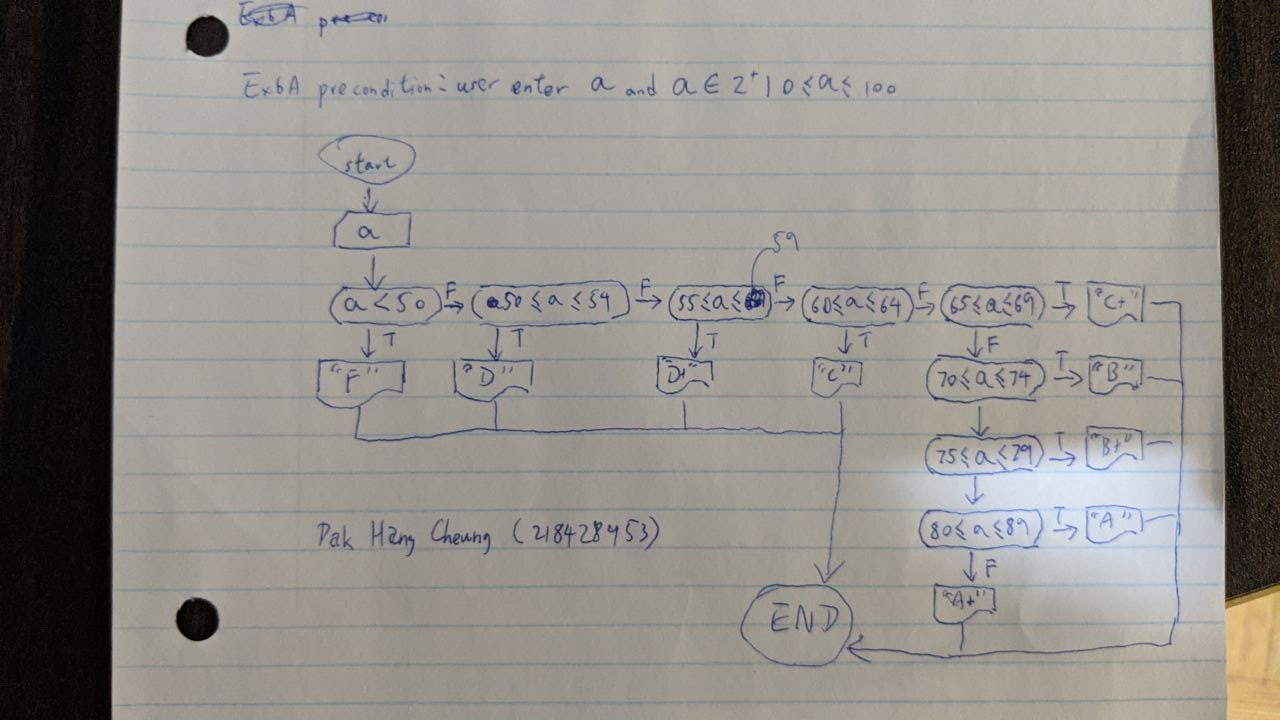 Ex6A precondition: user enter a and a ∈ Z⁺ | 0 ≤ a ≤ 100
start
a
59
a < 50 F 50 ≤ a ≤ 54 F 55 ≤ a ≤ F 60 ≤ a ≤ 64 F 65 ≤ a ≤ 69 T "C+"
T T T T F
"F" "D" "D+" "C" 70 ≤ a ≤ 74 T "B"
75 ≤ a ≤ 79 T "B+"
80 ≤ a ≤ 89 T "A"
Pak Hang Cheung (218428453)
F
"A+"
END